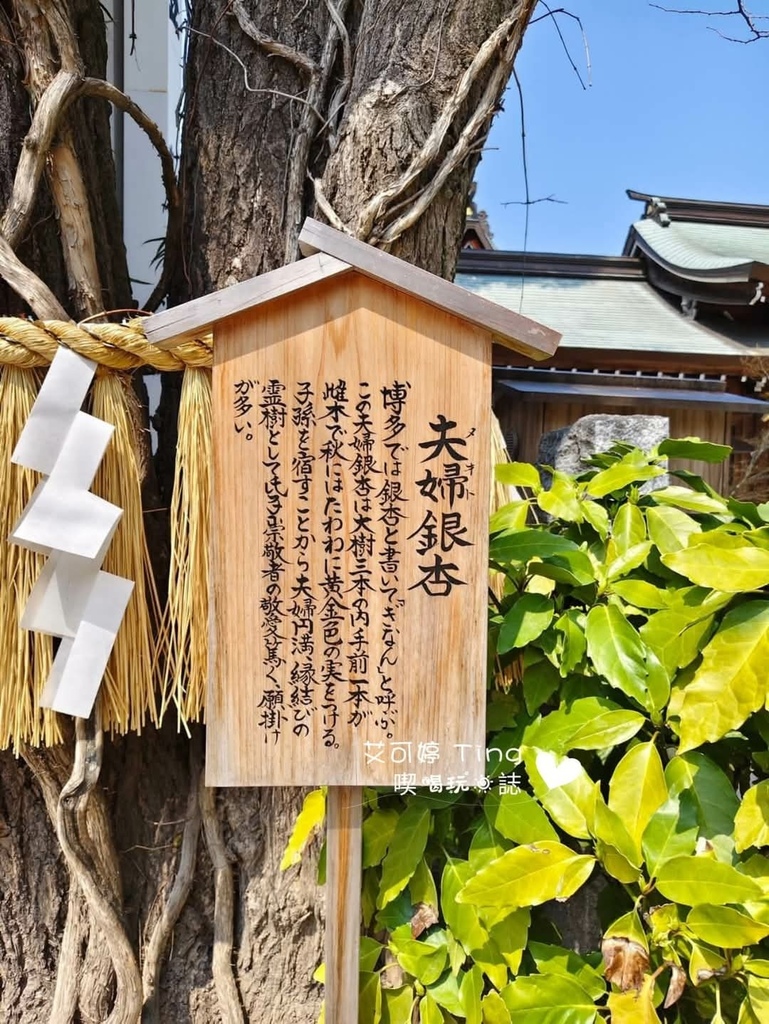 夫婦銀杏
メオト
博多では銀杏と書いて“ぎなん”と呼ぶ。
この夫婦銀杏は大樹三本の内手前一本が
雌木で秋にはたわわに黄金色の実をつける。
子孫を宿すことから夫婦円満、縁結びの
霊樹として氏子崇敬者の敬愛篤く、願掛け
が多い。
艾可婷 Tina
喫喝玩樂誌